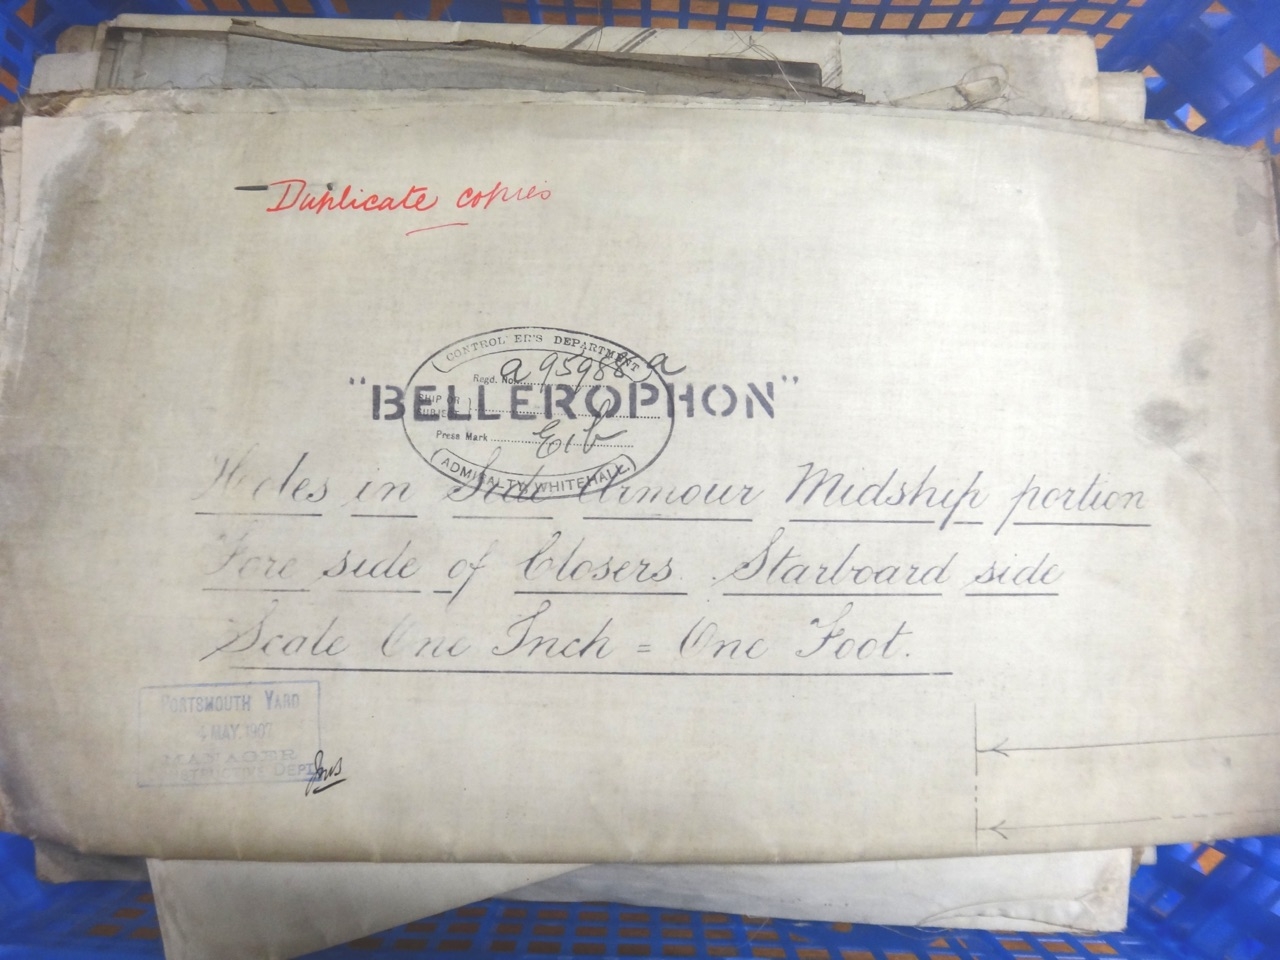 Duplicate copies
CONTROLLER'S DEPARTMENT
Regd. No. a 95988 a
SHIP OR
SUBJECT
"BELLEROPHON"
Press Mark E1b
ADMIRALTY, WHITEHALL.
Holes in Side Armour Midship portion
Fore side of Closers. Starboard side
Scale One Inch = One Foot.
PORTSMOUTH YARD
MAY. 1907
MANAGER
CONSTRUCTIVE DEPT